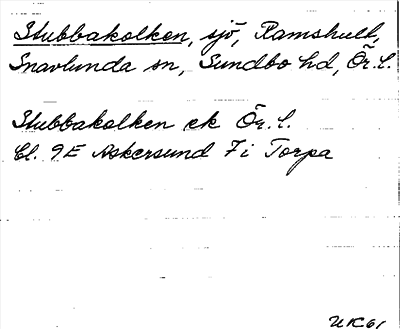 Stubbakolken, sjö, Ramshult,
Snavlunda sn, Sundbo hd, Ör. l.
Stubbakolken ek Ör. l.
Bl. 9E Askersund 7i Torpa
UK 61